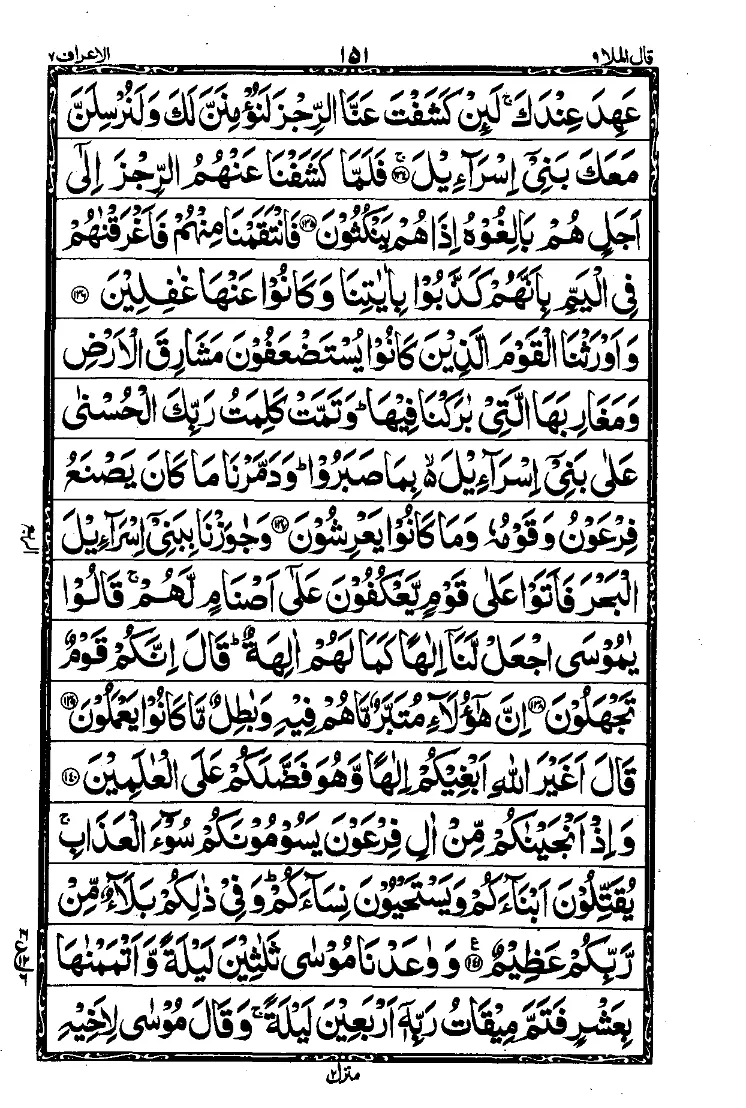 قال الملا ٩ ١٥١ الاعراف ٧
عَهِدَ عِنْدَكَ ۚ لَئِنْ كَشَفْتَ عَنَّا الرِّجْزَ لَنُؤْمِنَنَّ لَكَ وَلَنُرْسِلَنَّ
مَعَكَ بَنِیْۤ اِسْرَآءِیْلَ ۚ﴿۱۳۴﴾ فَلَمَّا كَشَفْنَا عَنْهُمُ الرِّجْزَ اِلٰۤی
اَجَلٍ هُمْ بَالِغُوْهُ اِذَا هُمْ یَنْكُثُوْنَ ﴿۱۳۵﴾ فَانْتَقَمْنَا مِنْهُمْ فَاَغْرَقْنٰهُمْ
فِی الْیَمِّ بِاَنَّهُمْ كَذَّبُوْا بِاٰیٰتِنَا وَكَانُوْا عَنْهَا غٰفِلِیْنَ ﴿۱۳۶﴾
وَاَوْرَثْنَا الْقَوْمَ الَّذِیْنَ كَانُوْا یُسْتَضْعَفُوْنَ مَشَارِقَ الْاَرْضِ
وَمَغَارِبَهَا الَّتِیْ بٰرَكْنَا فِیْهَا ؕ وَتَمَّتْ كَلِمَتُ رَبِّكَ الْحُسْنٰی
عَلٰی بَنِیْۤ اِسْرَآءِیْلَ ۙ۬ بِمَا صَبَرُوْا ؕ وَدَمَّرْنَا مَا كَانَ یَصْنَعُ
فِرْعَوْنُ وَقَوْمُهٗ وَمَا كَانُوْا یَعْرِشُوْنَ ﴿۱۳۷﴾ وَجٰوَزْنَا بِبَنِیْۤ اِسْرَآءِیْلَ
الْبَحْرَ فَاَتَوْا عَلٰی قَوْمٍ یَّعْكُفُوْنَ عَلٰۤی اَصْنَامٍ لَّهُمْ ۚ قَالُوْا
یٰمُوْسَی اجْعَلْ لَّنَاۤ اِلٰهًا كَمَا لَهُمْ اٰلِهَةٌ ؕ قَالَ اِنَّكُمْ قَوْمٌ
تَجْهَلُوْنَ ﴿۱۳۸﴾ اِنَّ هٰۤؤُلَآءِ مُتَبَّرٌ مَّا هُمْ فِیْهِ وَبٰطِلٌ مَّا كَانُوْا یَعْمَلُوْنَ ﴿۱۳۹﴾
قَالَ اَغَیْرَ اللّٰهِ اَبْغِیْكُمْ اِلٰهًا وَّهُوَ فَضَّلَكُمْ عَلَی الْعٰلَمِیْنَ ﴿۱۴۰﴾
وَاِذْ اَنْجَیْنٰكُمْ مِّنْ اٰلِ فِرْعَوْنَ یَسُوْمُوْنَكُمْ سُوْٓءَ الْعَذَابِ ۚ
یُقَتِّلُوْنَ اَبْنَآءَكُمْ وَیَسْتَحْیُوْنَ نِسَآءَكُمْ ؕ وَفِیْ ذٰلِكُمْ بَلَآءٌ مِّنْ
رَّبِّكُمْ عَظِیْمٌ ﴿۱۴۱﴾ وَوٰعَدْنَا مُوْسٰی ثَلٰثِیْنَ لَیْلَةً وَّاَتْمَمْنٰهَا
بِعَشْرٍ فَتَمَّ مِیْقَاتُ رَبِّهٖۤ اَرْبَعِیْنَ لَیْلَةً ۚ وَقَالَ مُوْسٰی لِاَخِیْهِ
منزل ٢